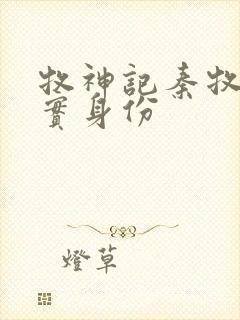 牧神記秦牧
實身份
燈草